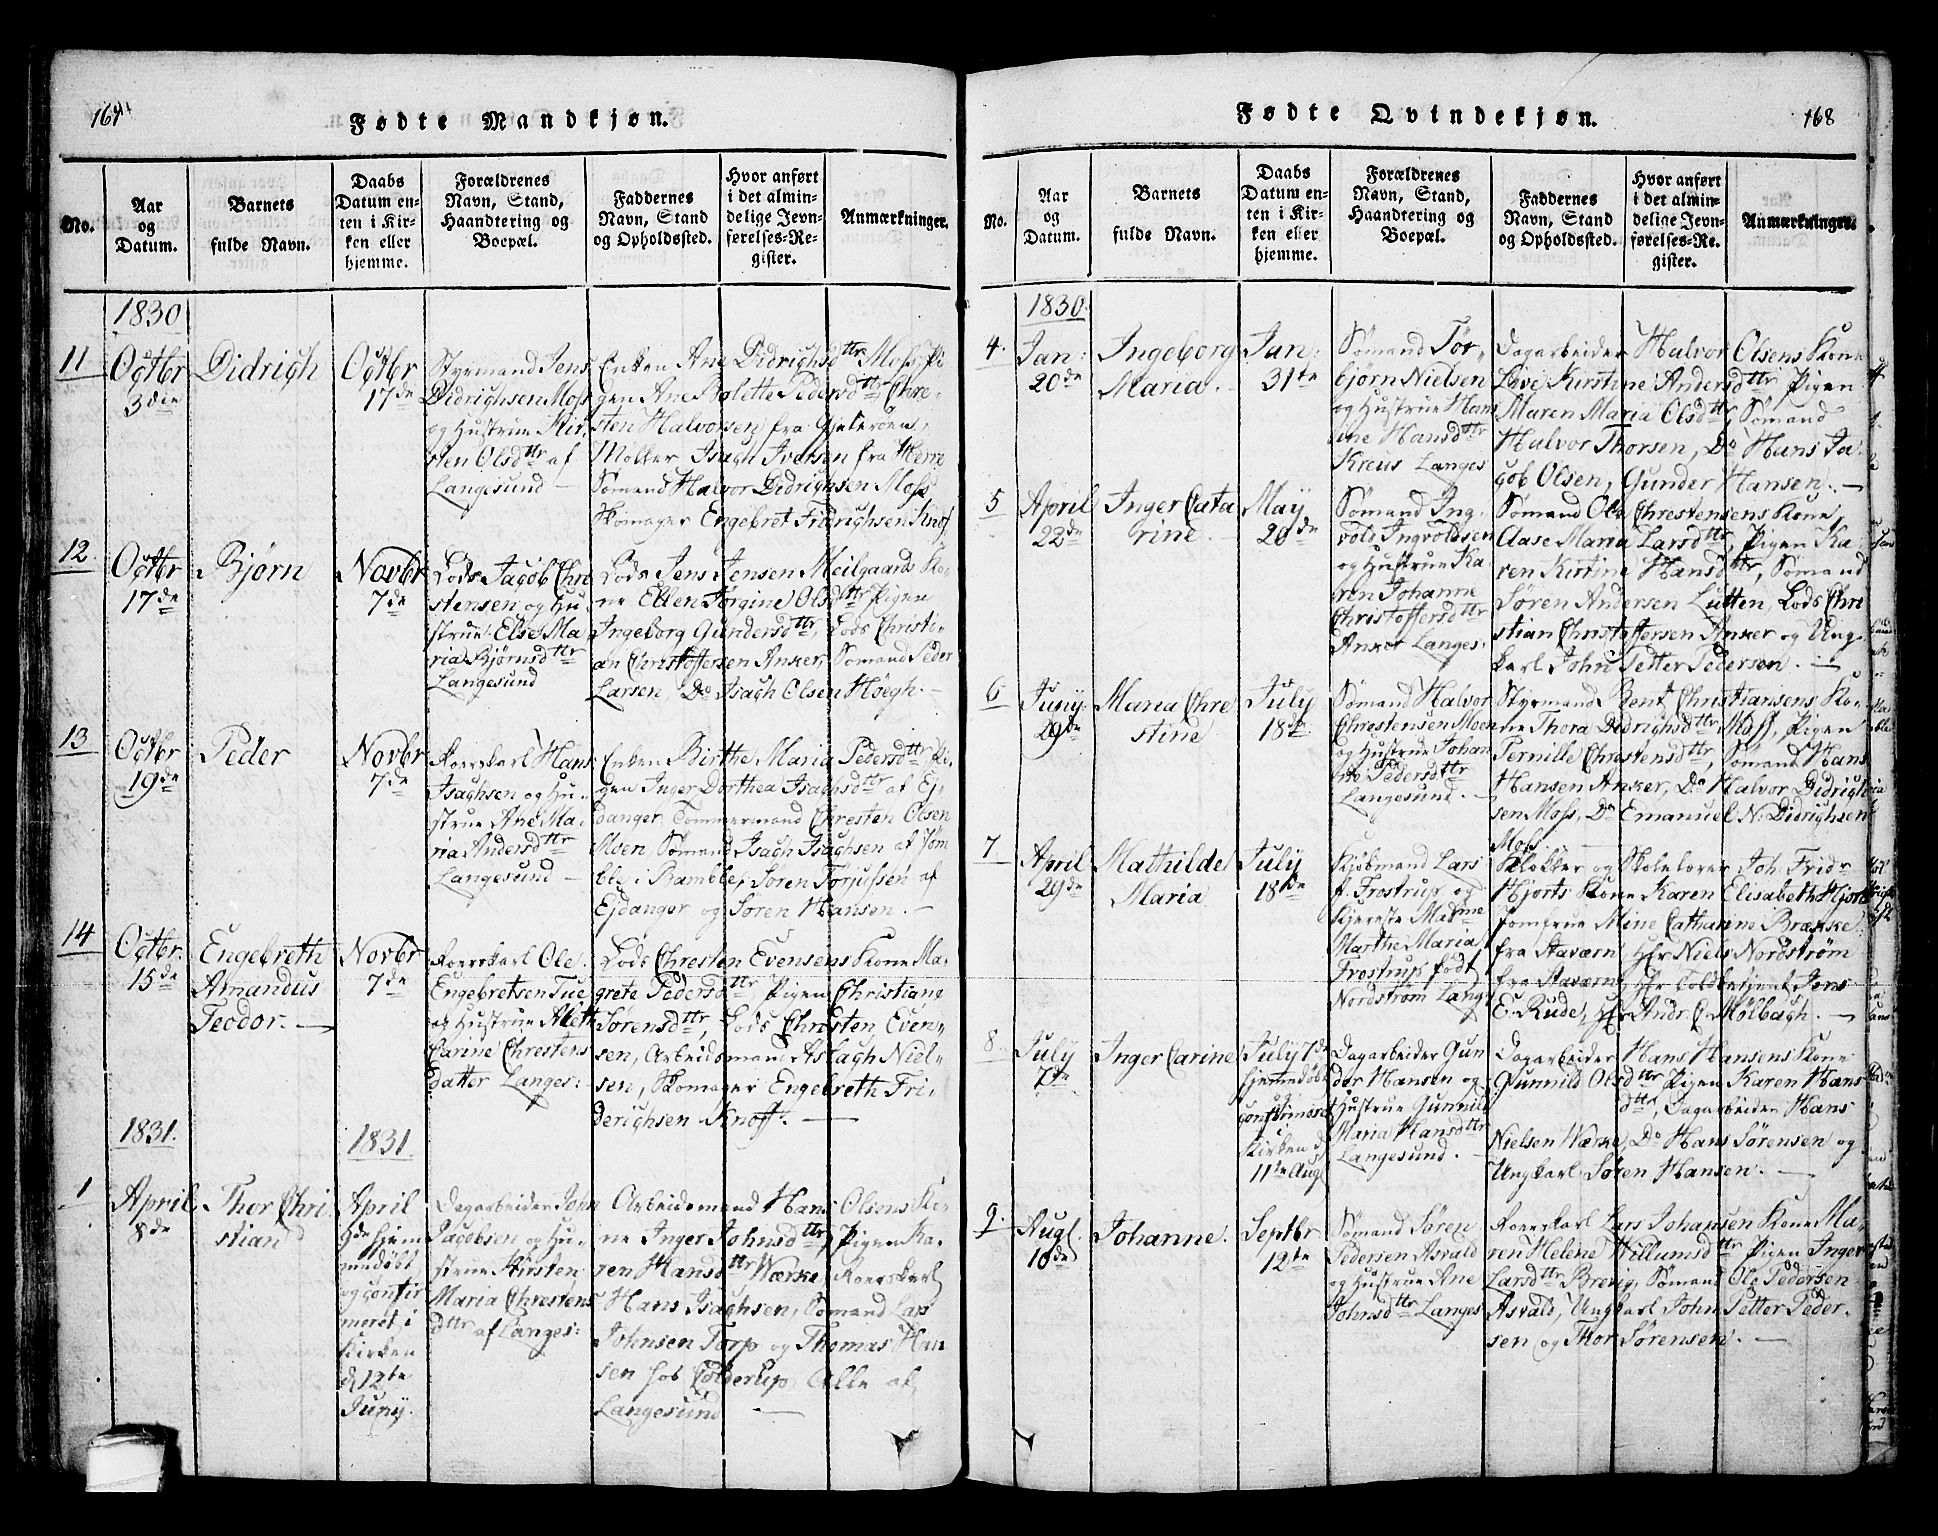 164
Fødte Mandkjøn.
No.
Aar
og
Datum.
Barnets
fulde Navn.
Daabs
Datum en-
ten i Kir-
ken eller
hjemme.
Forældrenes
Navn, Stand,
Haandtering og
Boepæl.
Faddernes
Navn, Stand
og Opholdssted.
Hvor anført
i det almin-
delige Jevn-
førelses-Re-
gister.
Anmærkninger.
1830
11
Octbr
3die
Didrich
Octbr
17de
Styrmand Jens
Didrichsen Moss
og Hustrue Kir-
sten Olsdttr af
Langesund
Enken Ane Didrichsdttr Moss, Pi-
gen Ane Bolette Pedersdttr, Chre-
sten Halvorsen fra Gjeterøen,
Møller Isach Iversen fra Herre
Sømand Halvor Didrichsen Moss
Skomager Engebret Fridrichsen Knof.
12.
Octbr
17de
Bjørn
Novbr
7de
Lods Jacob Chri
stensen og Hu
strue Else Ma
ria Bjørnsdttr
Langesund
Lods Jens Jensen Meilgaards Ko-
ne Ellen Jørgine Olsdttr, Pigen
Ingeborg Gundersdttr, Lods Christi-
an Christoffersen Anker, Sømand Peder
Larsen, Do Isach Olsen Høegh.
13
Octbr
19de
Peder
Novbr
7de
Roerskarl Hans
Isachsen og Hu-
strue Ane Ma-
ria Andersdttr
Langesund
Enken Birthe Maria Pedersdttr Pi-
gen Inger Dorthea Isachsdttr af Ej-
danger Tømmermand Chresten Olsen
Moen, Sømand Isach Isachsen af Døm
ble i Bamble, Søren Torjussen af
Ejdanger og Søren Hansen.
14
Octbr.
15de
Engebreth
Amandus
Teodor.
Novbr
7de
Roerskarl Ole
Engebretsen Tue
og Hustrue Aleth
Carine Chrestens
datter Langes:
Lods Chresten Evensens Kone Ma-
grete Pedersdttr Pigen Christiane
Sørensdttr, Lods Christen Even-
sen, Arbeidsmand Aslach Niel-
sen, Skomager Engebreth Fri-
derichsen Knoff.
1831.
1831
1
April
8de
Thor Chri
stian
April
Hdehjem
medøbt
og confir
meret i
Kirken
d 12te
Juny.
Dagarbeider John
Jacobsen og Hu-
strue Kirsten
Maria Chrestens
dttr af Langes:
Arbeidsmand Hans Olsens Ko-
ne Inger Johnsdttr, Pigen Ka-
ren Hansdttr Værke, Roerskarl
Hans Isachsen, Sømand Lars
Johnsen Torp og Thomas Han
sen hos Colderup, Alle af
Langesund
168
Fødte Qvindekjøn.
No.
Aar
og
Datum.
Barnets
fulde Navn.
Daabs
Datum en-
ten i Kir-
ken eller
hjemme.
Forældrenes
Navn, Stand,
Haandtering og
Boepæl.
Faddernes
Navn, Stand
og Opholdssted.
Hvor anført
i det almin-
delige Jevn-
førelses-Re-
gister.
Anmærkninger.
1830.
4.
Jan:
20de
Ingeborg
Maria.
Jan:
31te
Sømand Tor-
bjørn Nielsen
og Hustrue Hans
ine Hansdttr
Kreus Langes
Dagarbeider Halvor Olsens Kone
Live Kirstine Andersdttr, Pigen
Maren Maria Olsdttr, Sømand
Halvor Thorsen, Do Hans Ja-
cob Olsen, Gunder Hansen.
5
April
22de
Inger Cata
rine.
May
20de
Sømand Ing-
vold Ingvoldsen
og Hustrue Ka-
ren Johanne
Christoffersdttr
Anker Langes:
Sømand Ole Chrestensens Kone
Aase Maria Larsdttr, Pigen Ka-
ren Kirtine Hansdttr, Sømand
Søren Andersen Lutten, Lods Chre
stian Christoffersen Anker og Ung-
karl John Petter Pedersen.
6
Juny
29de
Maria Chre
stine
July
18de
Sømand Halvor
Chrestensen Moen
og Hustrue Johan
ne Pedersdttr
Langesund.
Styrmand Bent Christiansens Ko-
ne Thora Didrichsdttr Moss, Pigen
Pernille Chrestensdttr, Sømand Hans
Hansen Anker, Do Halvor Didrich
sen Moss, Do Emanuel N. Didrichsen
Moss.
7
April
29de
Mathilde
Maria
July
18de
Kjøbmand Lars
Frostrup og
Kjereste Madme
Marthe Maria
Frostrup født
Nordstrøm Lang:
Klokker og Skolelærer Joh. Fridr
Hjorts Kone Karen Elisabeth Hjort
Jomfrue Mine Cathanne Brække
fra Staværn, Hr Niels Nordstrøm
fra Staværn, Hr Toldbetjent Jens
E. Rude, Hr Andr. C. Mølbach.
8
July
7de
Inger Carine
July 7de
hjemmedøbt
og
confirmeret
i
Kirken d
11te Aug
Dagarbeider Gun
der Hansen og
Hustrue Gunnild
Maria Hansdttr
Langesund.
Dagarbeider Hans Hansens Kone
Gunnild Olsdttr Pigen Karen Hans
dttr, Dagarbeider Hans
Nielsen Værke, Do Hans Sørensen og
Ungkarl Søren Hansen.
9.
Augt.
10de
Johanne.
Septbr
12te
Sømand Søren
Pedersen Asvald
og Hustrue Ane
Johnsdttr Langes
Roerskarl Lars Johansen Kone Ma-
ren Helene Willumsdttr Pigen Inger
Larsdttr Brevig, Sømand Ole Pedersen
Asvald, Ungkarl John Petter Peder-
sen og Thor Sørensen.